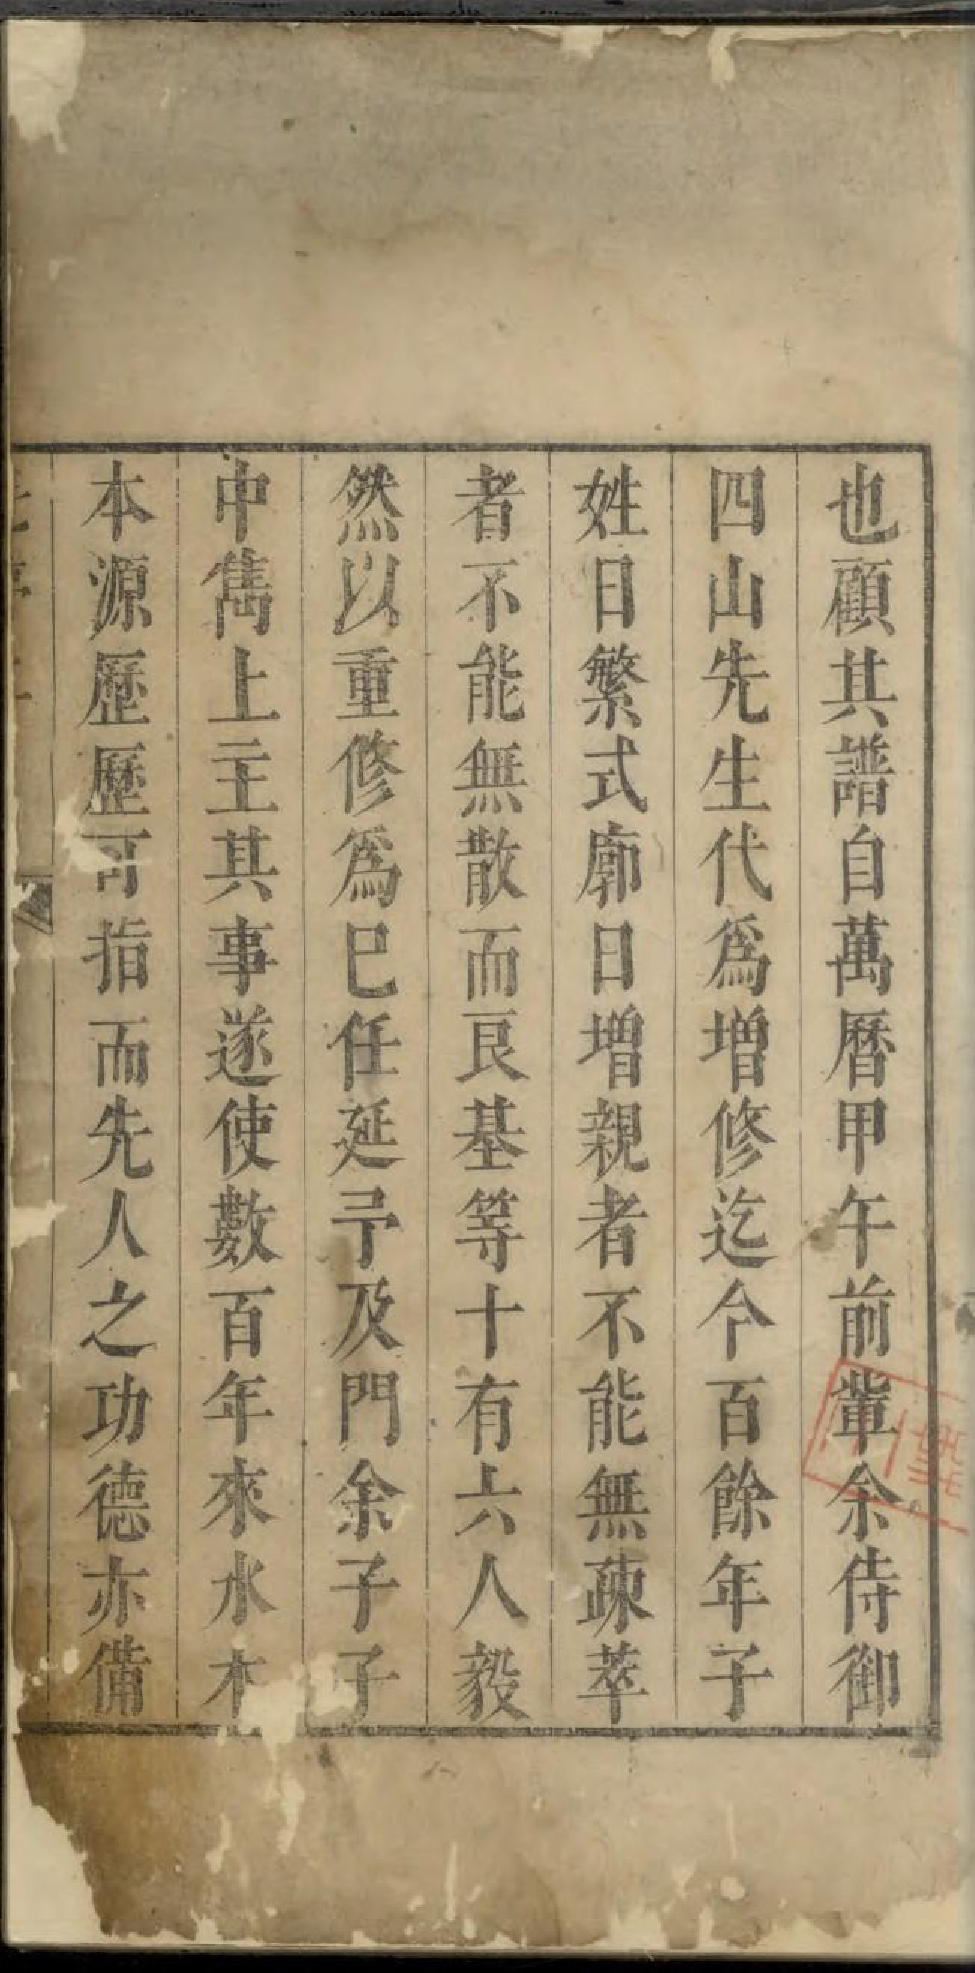 也顧其譜自萬曆甲午前軰余侍御
四山先生代爲增修迄今百餘年子
姓日繁式廓日增親者不能無疎萃
者不能無散而艮基等十有六人毅
然以重修爲已任延予及門余子子
中雋上主其事遂使數百年來水木
本源歷歷可指而先人之功德亦備